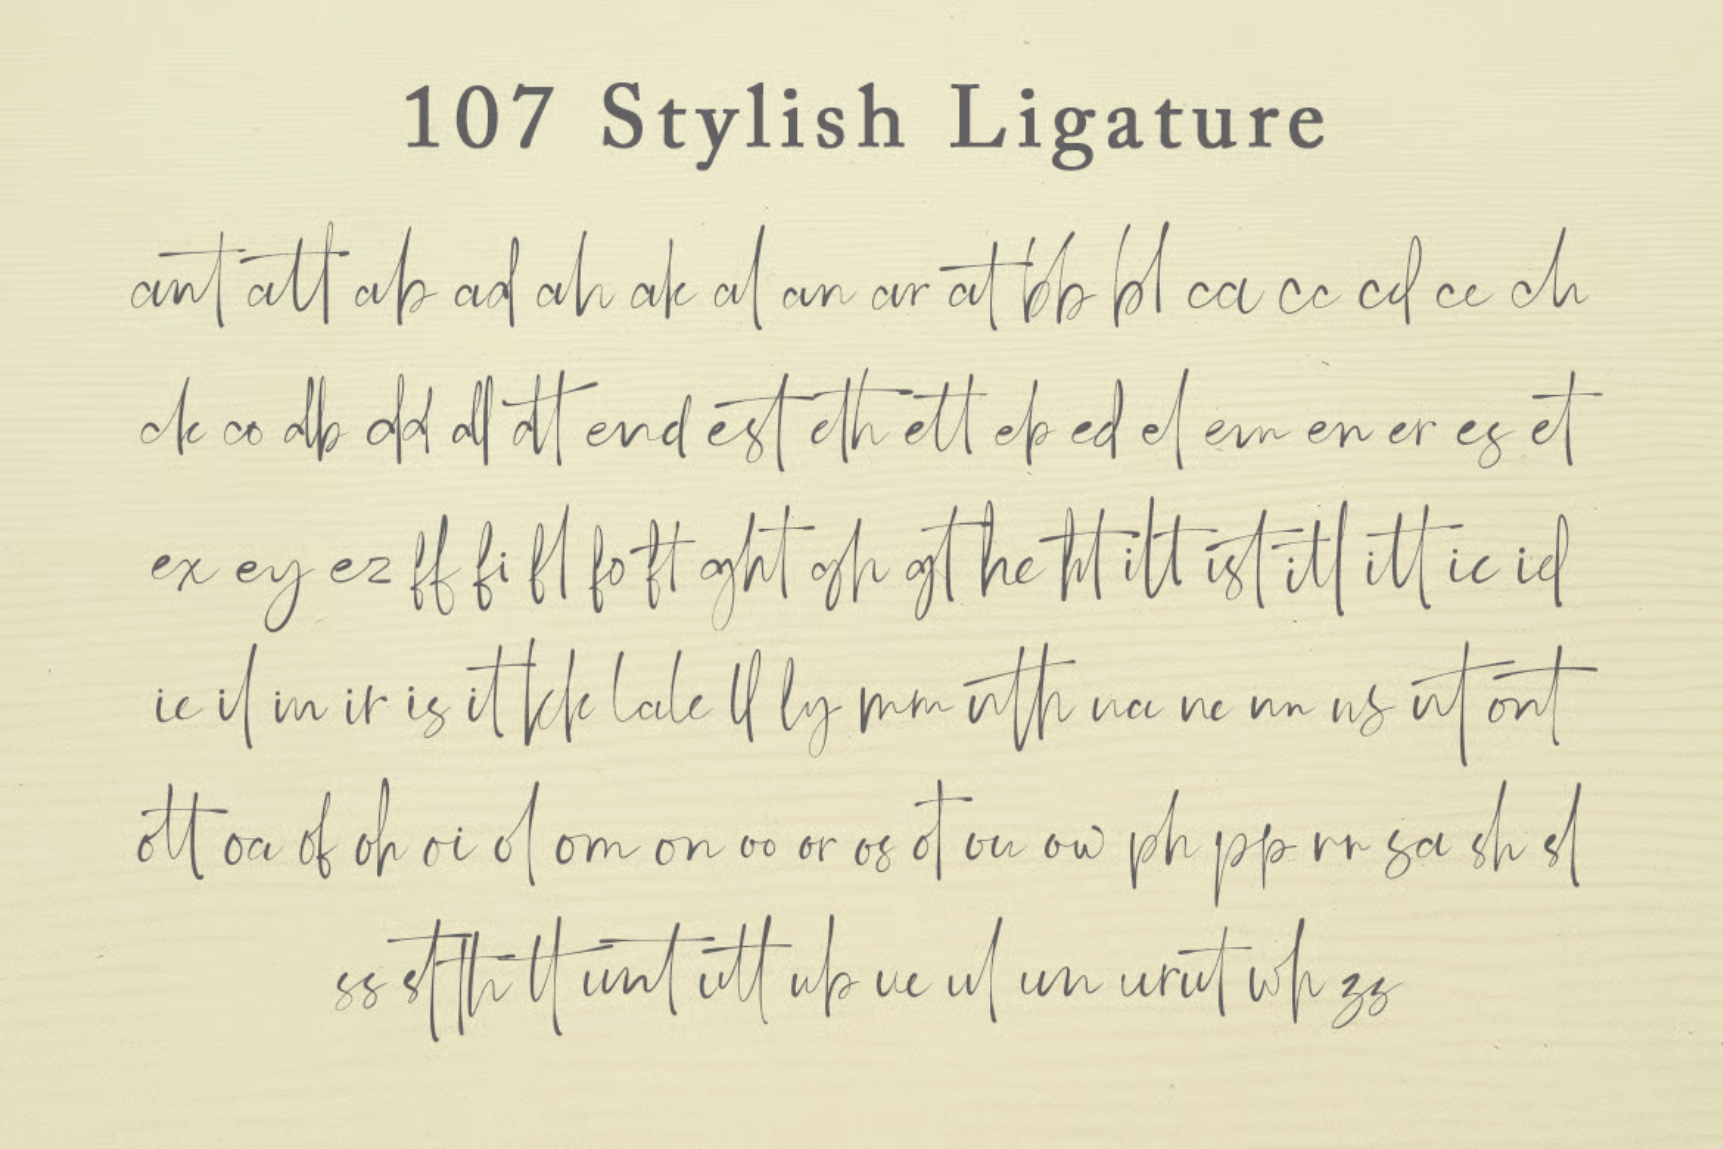 107 Stylish Ligature
ant att ab ad ah ak al an ar at bb bl ca cc cd ce ch
ck co db dd dl dt end est eth ett eb ed el em en er es et
ex ey ez ff fi fl fo ft ght gh gt he ht ilt ist itl itt ic id
ie il im ir is it kk la le ll ly mm nth na ne nn ns nt ont
ott oa of oh oi ol om on oo or os ot ou ow ph pp rr sa sh sl
ss st th tt unt utt ub ue ul un ur ut wh zz